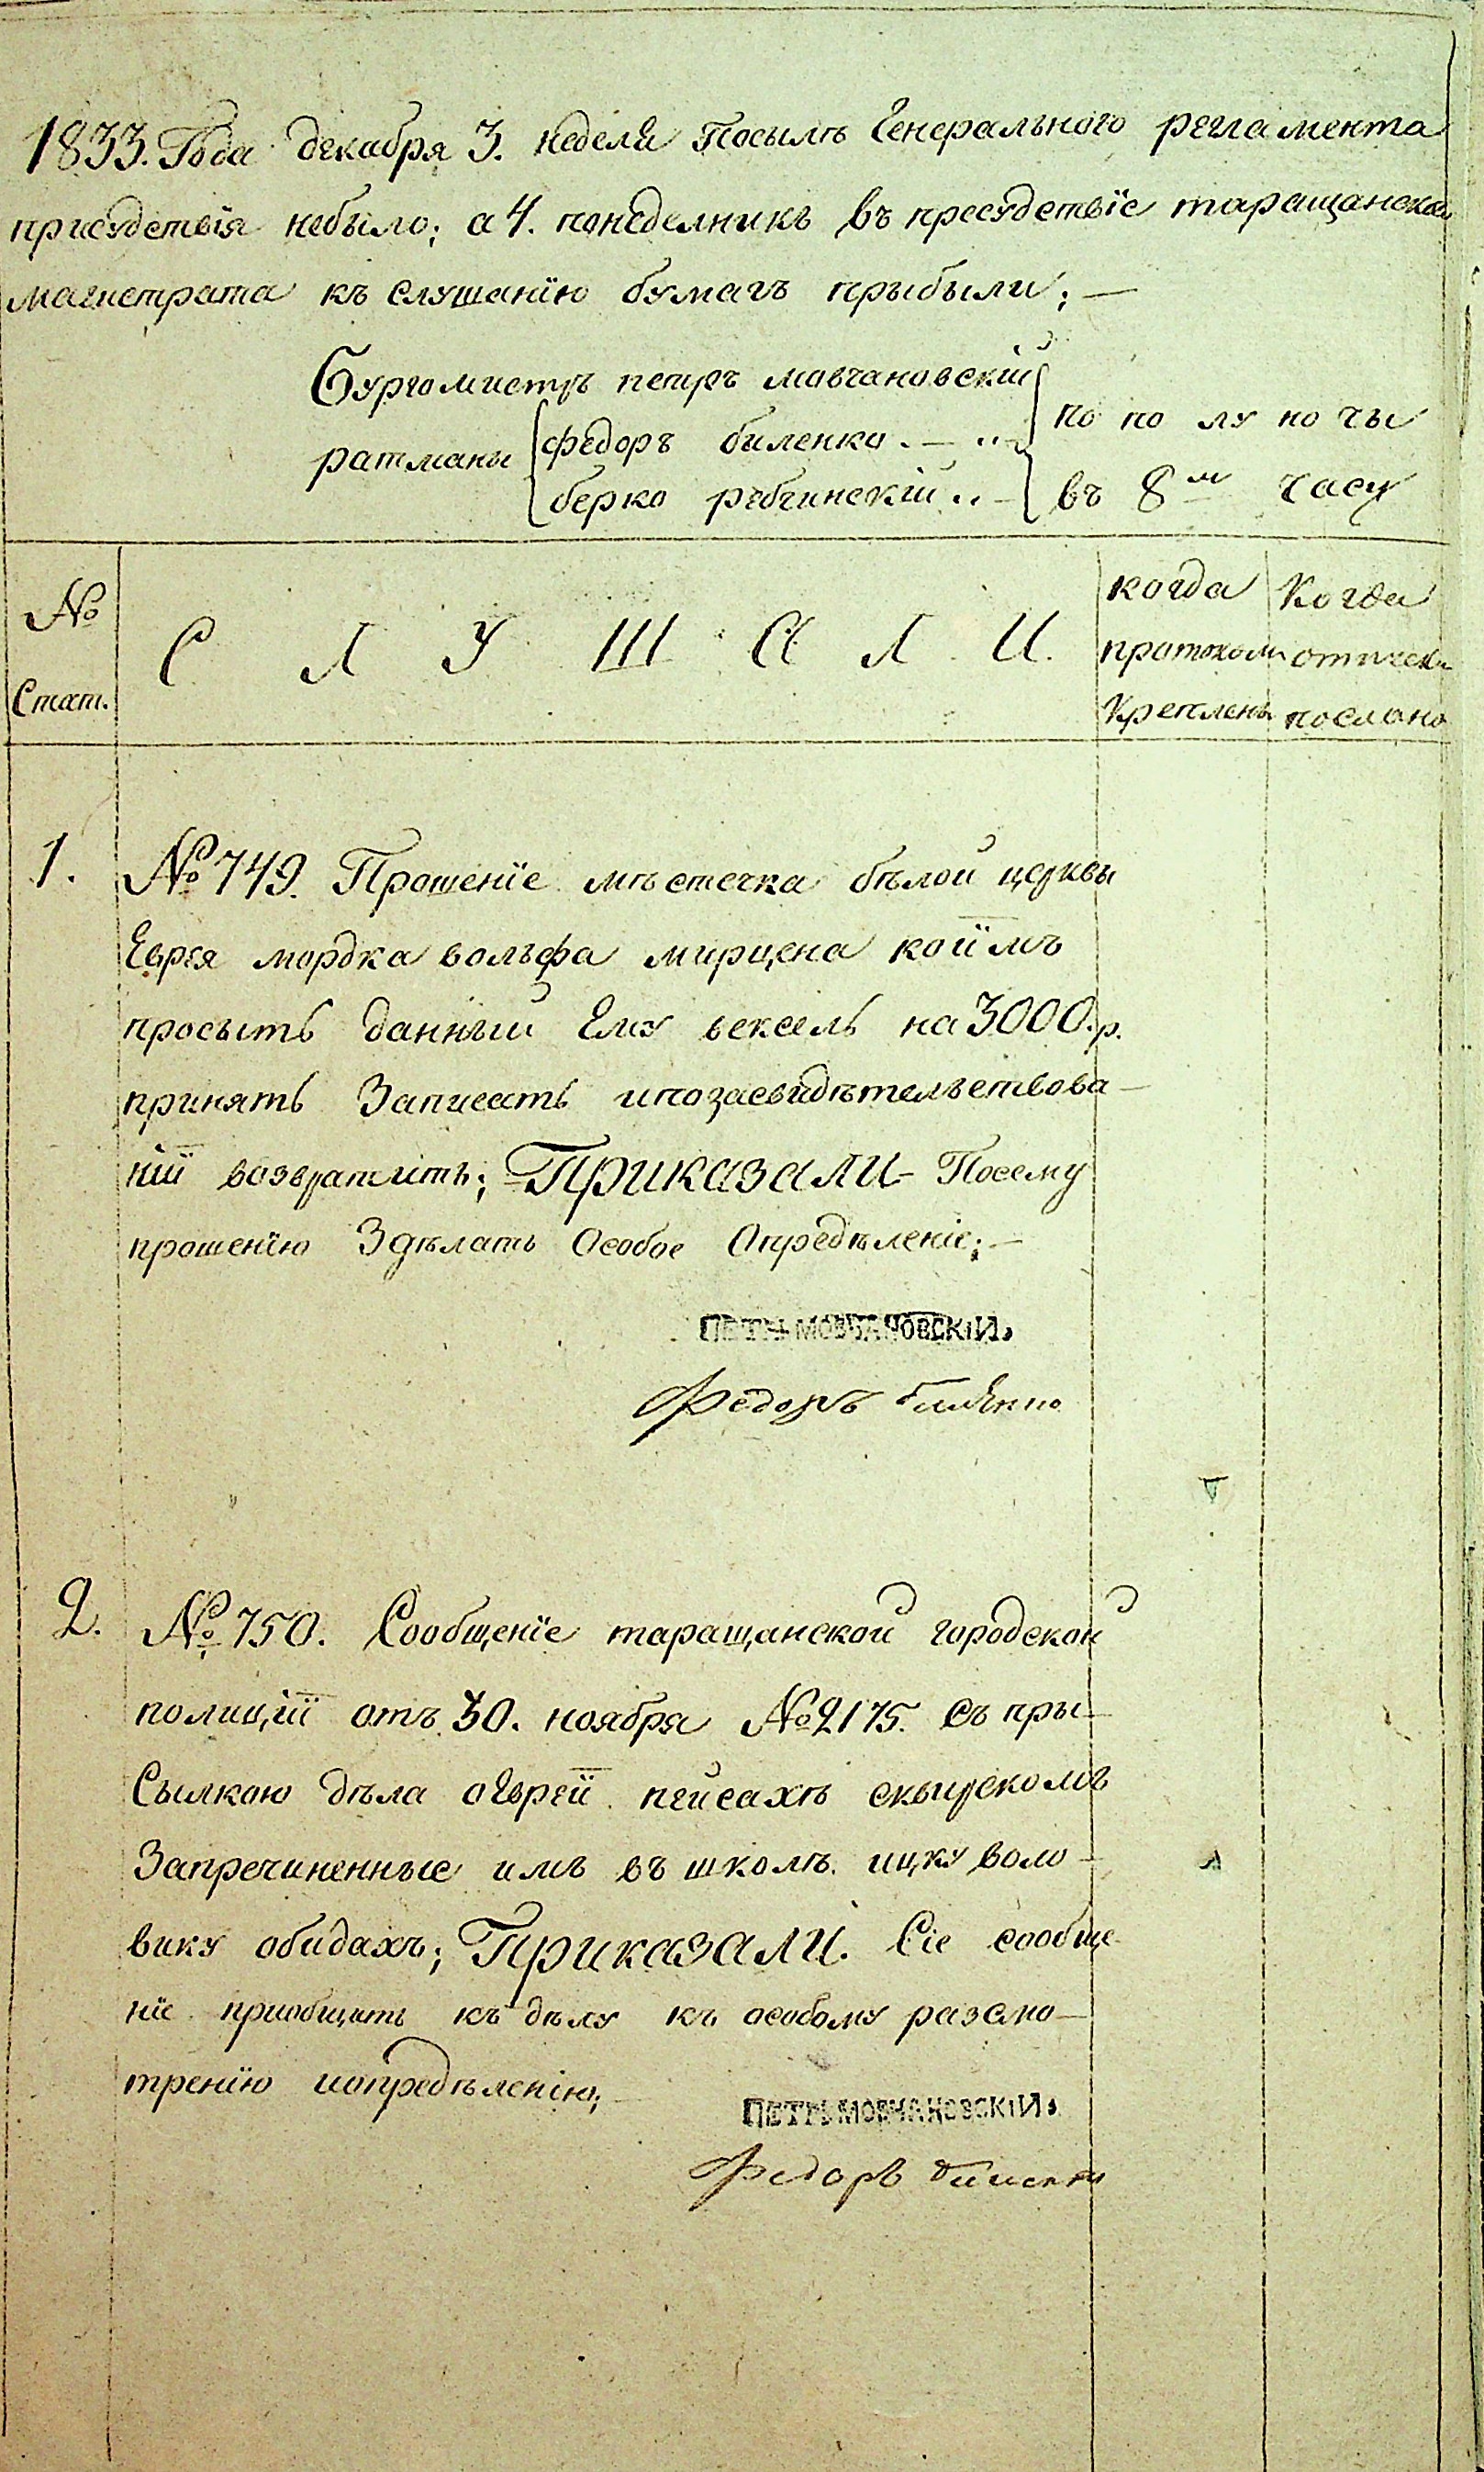 1833. Года декабря 3. неделя Посылѣ Генерального регламента
присудствїя небыло; а 4. понеделникъ въ пресудствїе таращанской
магистрата къ слушанїю бумагъ прыбыли; —
Бургомистръ петръ мовчановскій
ратманы федоръ биленко. — по полуночы
берко рѣбчинскій .. — въ 8м часу
№ Стат.
С Л У Ш А Л И.
когда протоколы Креплены
Когда отписки послано
1. № 749. Прошенїе мѣстечка бѣлой церквы
Еврея мордка вольфа мирцена коимъ
просыть данный Ему вексель на 3000 р.
принять Записать ипозасвидѣтельствова-
нїи возвратить; Приказали - Посему
прошенїю Здѣлать Особое Опредѣленіе; —
ПЕТРЪ МОВЧАНОВСКІЙ
Федоръ Биленко
2. № 750. Сообщенїе таращанской городской
полицїи отъ 30. ноября № 2175. Съ пры-
Сылкою дѣла оЕвреи пейсахѣ сквирскомъ
Запречиненные имъ въ школѣ ицку воло-
вику обидахъ; Приказали. Сїе сообще-
нїе приобщить къ дѣлу къ особому разсмо-
тренїю иопредѣленїю;
ПЕТРЪ МОВЧАНОВСКІЙ
Федоръ Биленко